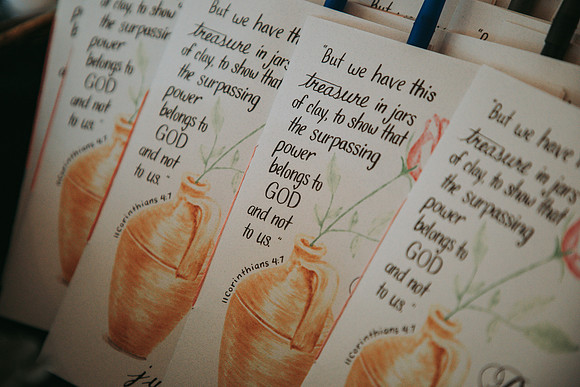 clay, to show that
the surpassing
power
belongs to
GOD
and not
to us."
IICorinthians 4:7
"But we have
treasure in jars
of clay, to show that
the surpassing
power
belongs to
GOD
and not
to us."
IICorinthians 4:7
"But we have this
treasure in jars
of clay, to show that
the surpassing
power
belongs to
GOD
and not
to us."
IICorinthians 4:7
"But we have
treasure in jars
of clay, to show that
the surpassing
power
belongs to
GOD
and not
to us."
IICorinthians 4:7